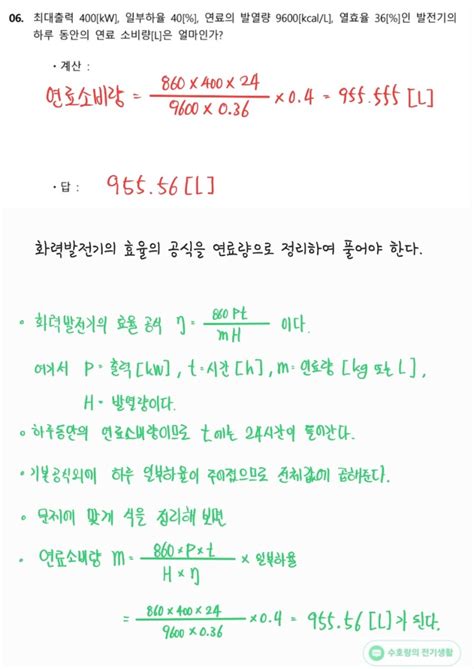 06. 최대출력 400[kW], 일부하율 40[%], 연료의 발열량 9600[kcal/L], 열효율 36[%]인 발전기의
하루 동안의 연료 소비량[L]은 얼마인가?
• 계산 :
연료소비량 = 860 × 400 × 24 / 9600 × 0.36 × 0.4 = 955.555 [L]
• 답 : 955.56 [L]
화력발전기의 효율의 공식을 연료량으로 정리하여 풀어야 한다.
• 화력발전기의 효율 공식 η = 860 Pt / mH 이다.
여기서 P = 출력 [kW], t = 시간 [h], m = 연료량 [kg 또는 L],
H = 발열량이다.
• 하루동안의 연료소비량이므로 t에는 24시간이 들어간다.
• 기본공식외에 하루 일부하율이 주어졌으므로 전체값에 곱해준다.
• 문제에 맞게 식을 정리해 보면
• 연료소비량 m = 860 × P × t / H × η × 일부하율
= 860 × 400 × 24 / 9600 × 0.36 × 0.4 = 955.56 [L]가 된다.
수호랑의 전기생활